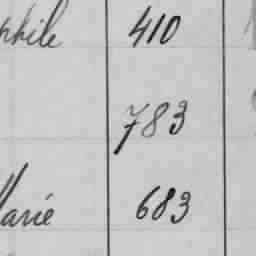 phile 410
783
Marie 683